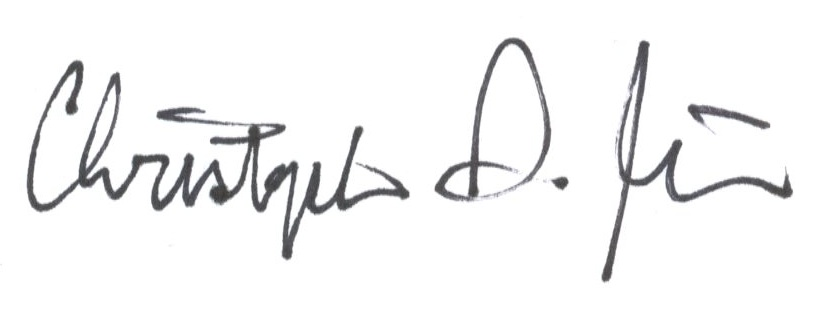 Christopher D.